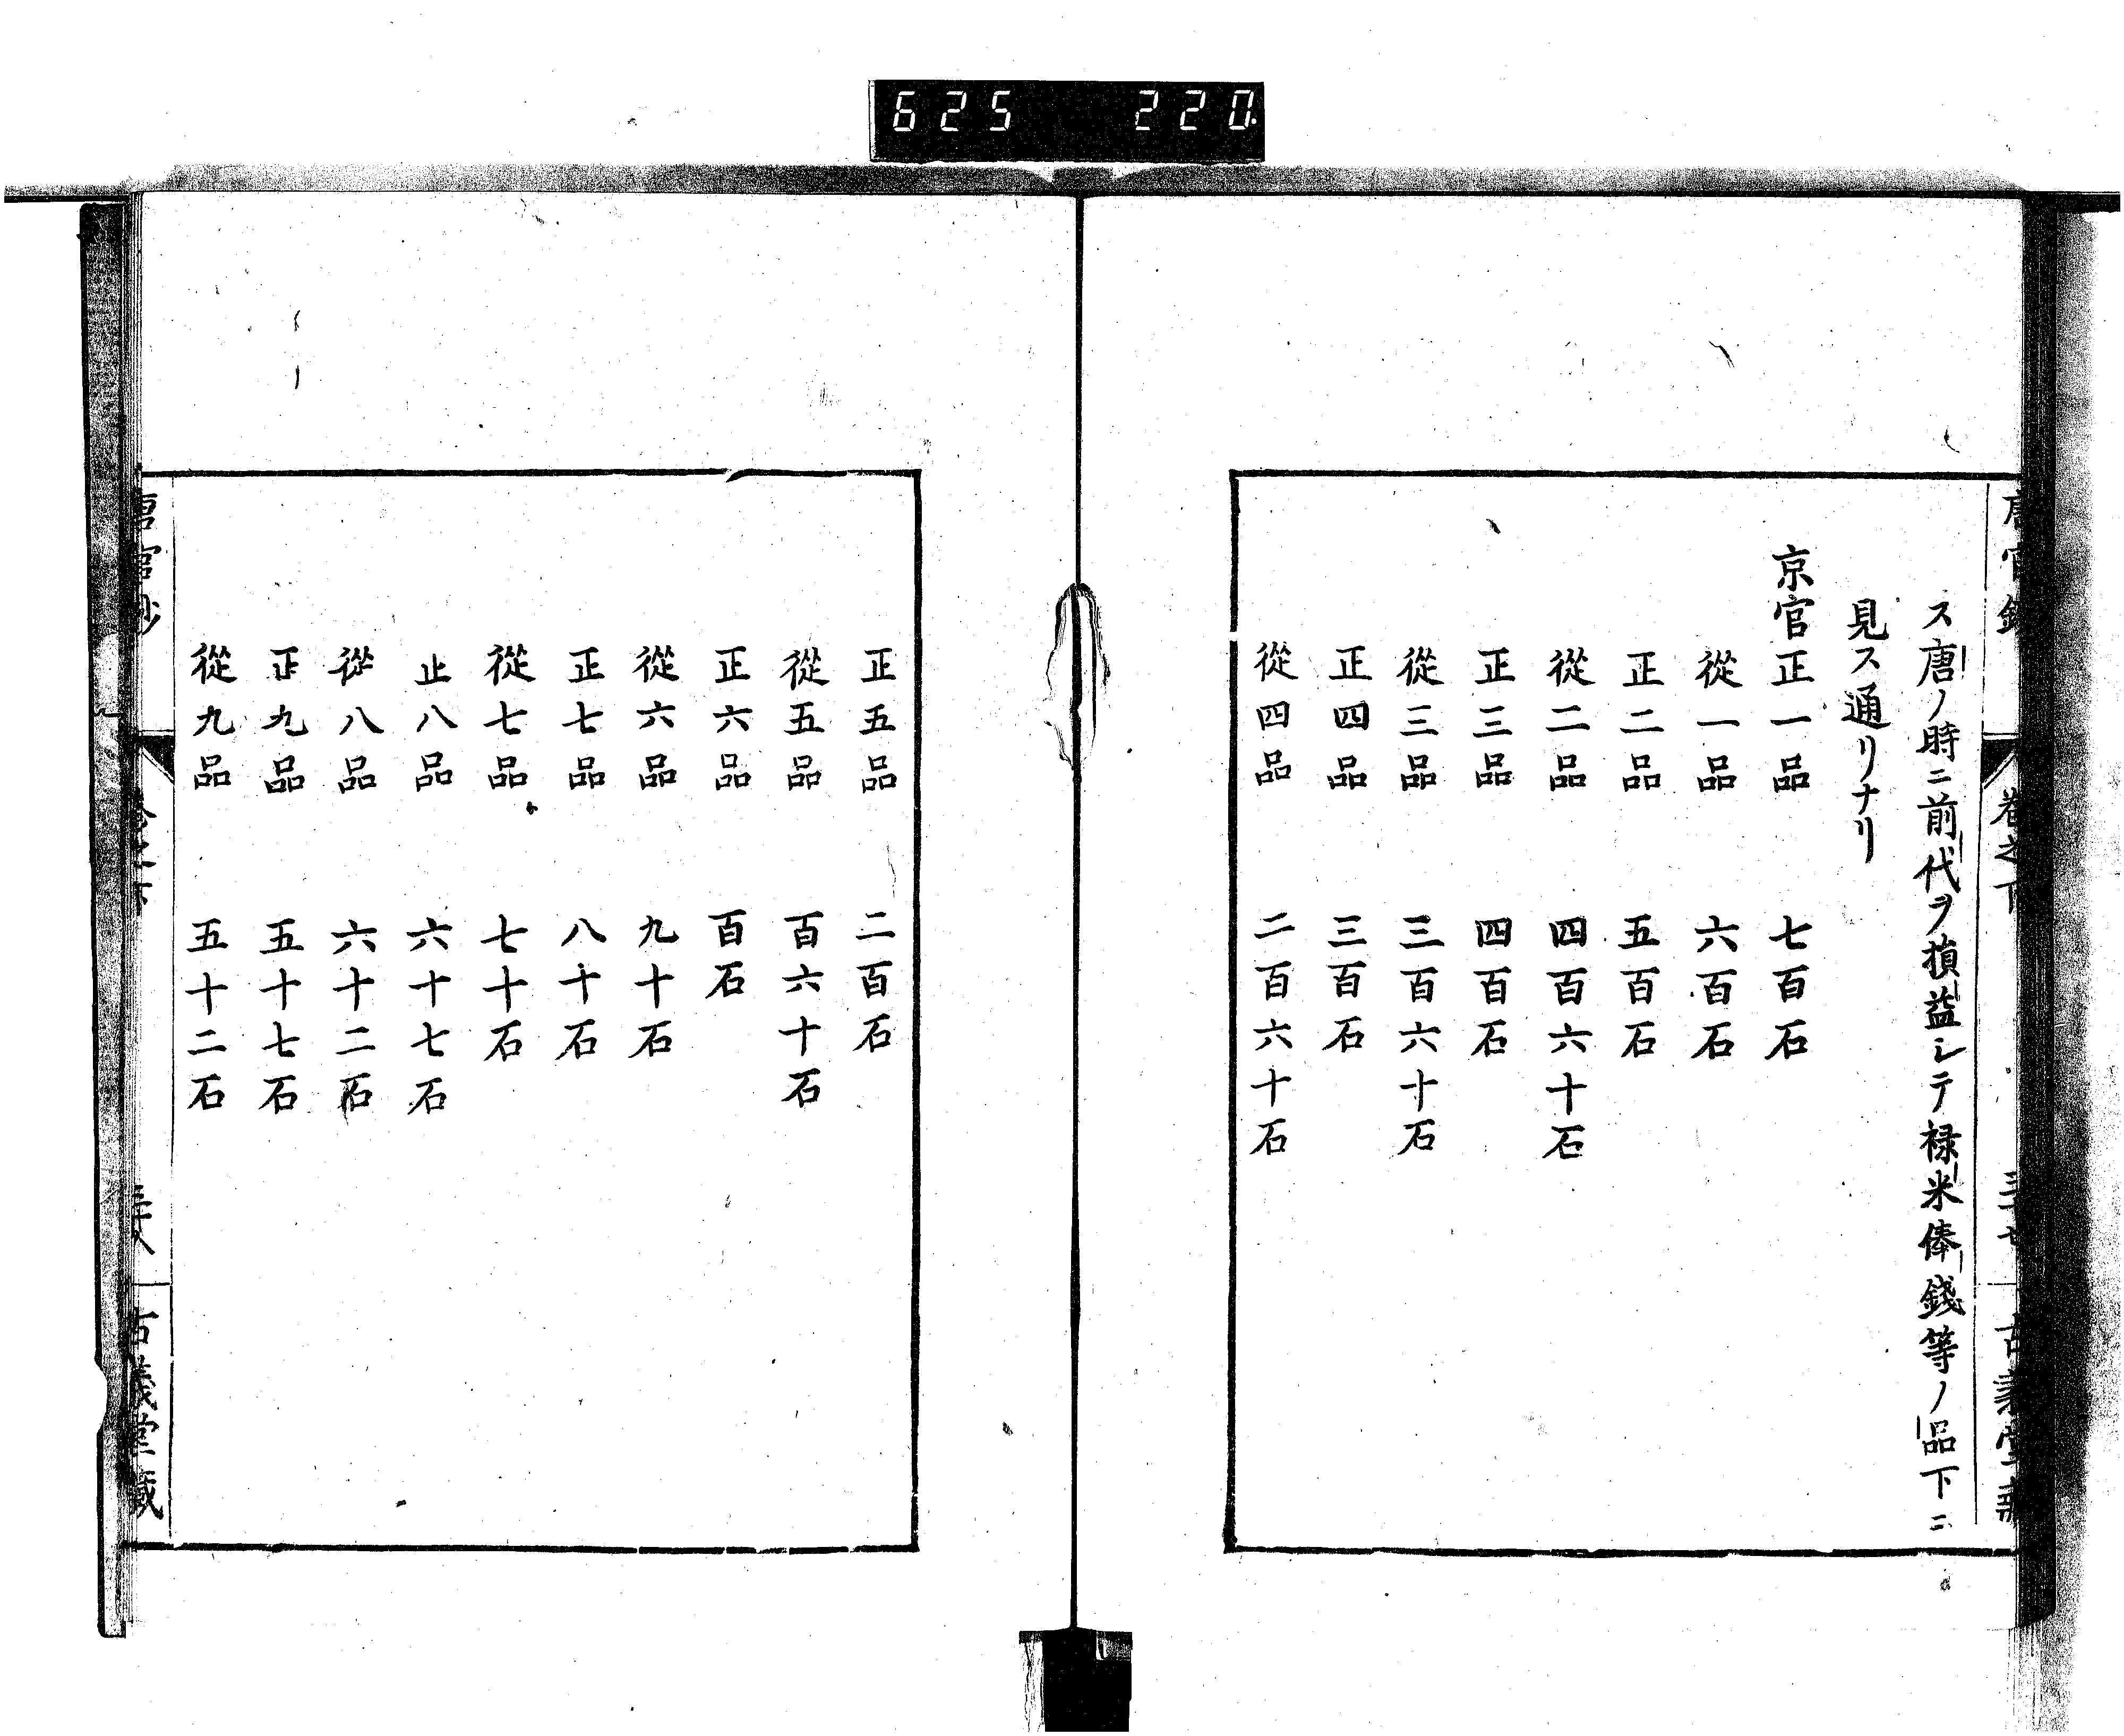 625 220
唐官鈔 卷之下 三十七 古義堂藏
ス唐ノ時ニ前代ヲ損益シテ禄米俸錢等ノ品下ニ
見ス通リナリ
京官正一品 七百石
從一品 六百石
正二品 五百石
從二品 四百六十石
正三品 四百石
從三品 三百六十石
正四品 三百石
從四品 二百六十石
正五品 二百石
從五品 百六十石
正六品 百石
從六品 九十石
正七品 八十石
從七品 七十石
正八品 六十七石
從八品 六十二石
正九品 五十七石
從九品 五十二石
唐官鈔 卷之下 古義堂藏